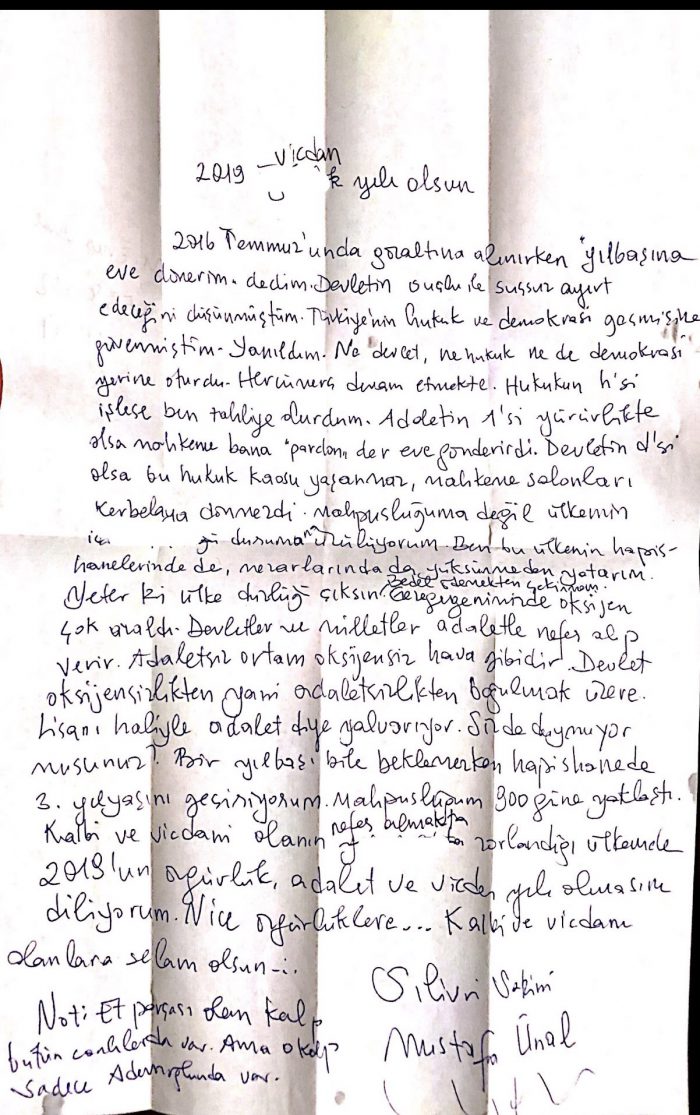 2019 vicdan
yılı olsun
2016 Temmuz'unda gözaltına alınırken "yılbaşına
eve dönerim" dedim. Devletin suçlu ile suçsuz ayırt
edeceğini düşünmüştüm. Türkiye'nin hukuk ve demokrasi geçmişine
güvenmiştim. Yanıldım. Ne devlet, ne hukuk ne de demokrasi
yerine oturdu. Hercümerç devam etmekte. Hukukun h'si
işlese ben tahliye olurdum. Adaletin A'sı yürürlükte
olsa mahkeme bana "pardon" der eve gönderirdi. Devletin d'si
olsa bu hukuk kaosu yaşanmaz, mahkeme salonları
Kerbelaya dönmezdi. Mahpusluğuma değil ülkemin
duruma üzülüyorum. Ben bu ülkenin hapis-
hanelerinde de, mezarlarında da yüksünmeden yatarım.
Bedel ödemekten çekinmem.
Yeter ki ülke düzlüğe çıksın. Gezegenimizde oksijen
çok azaldı. Devletler ve milletler adaletle nefes alıp
verir. Adaletsiz ortam oksijensiz hava gibidir. Devlet
oksijensizlikten yani adaletsizlikten boğulmak üzere.
Lisanı haliyle adalet diye yalvarıyor. Siz de duymuyor
musunuz? Bir yılbaşı bile beklemezken hapishanede
3. yılbaşını geçiriyorum. Mahpusluğum 900 güne yaklaştı.
Kalbi ve vicdanı olanın nefes almakta zorlandığı ülkemde
2019'un özgürlük, adalet ve vicdan yılı olmasını
diliyorum. Nice özgürlüklere... Kalbi ve vicdanı
olanlara selam olsun
Silivri Sakini
Mustafa Ünal
Not: Et parçası olan kalp
bütün canlılarda var. Ama o kalp
sadece Ademoğlunda var.